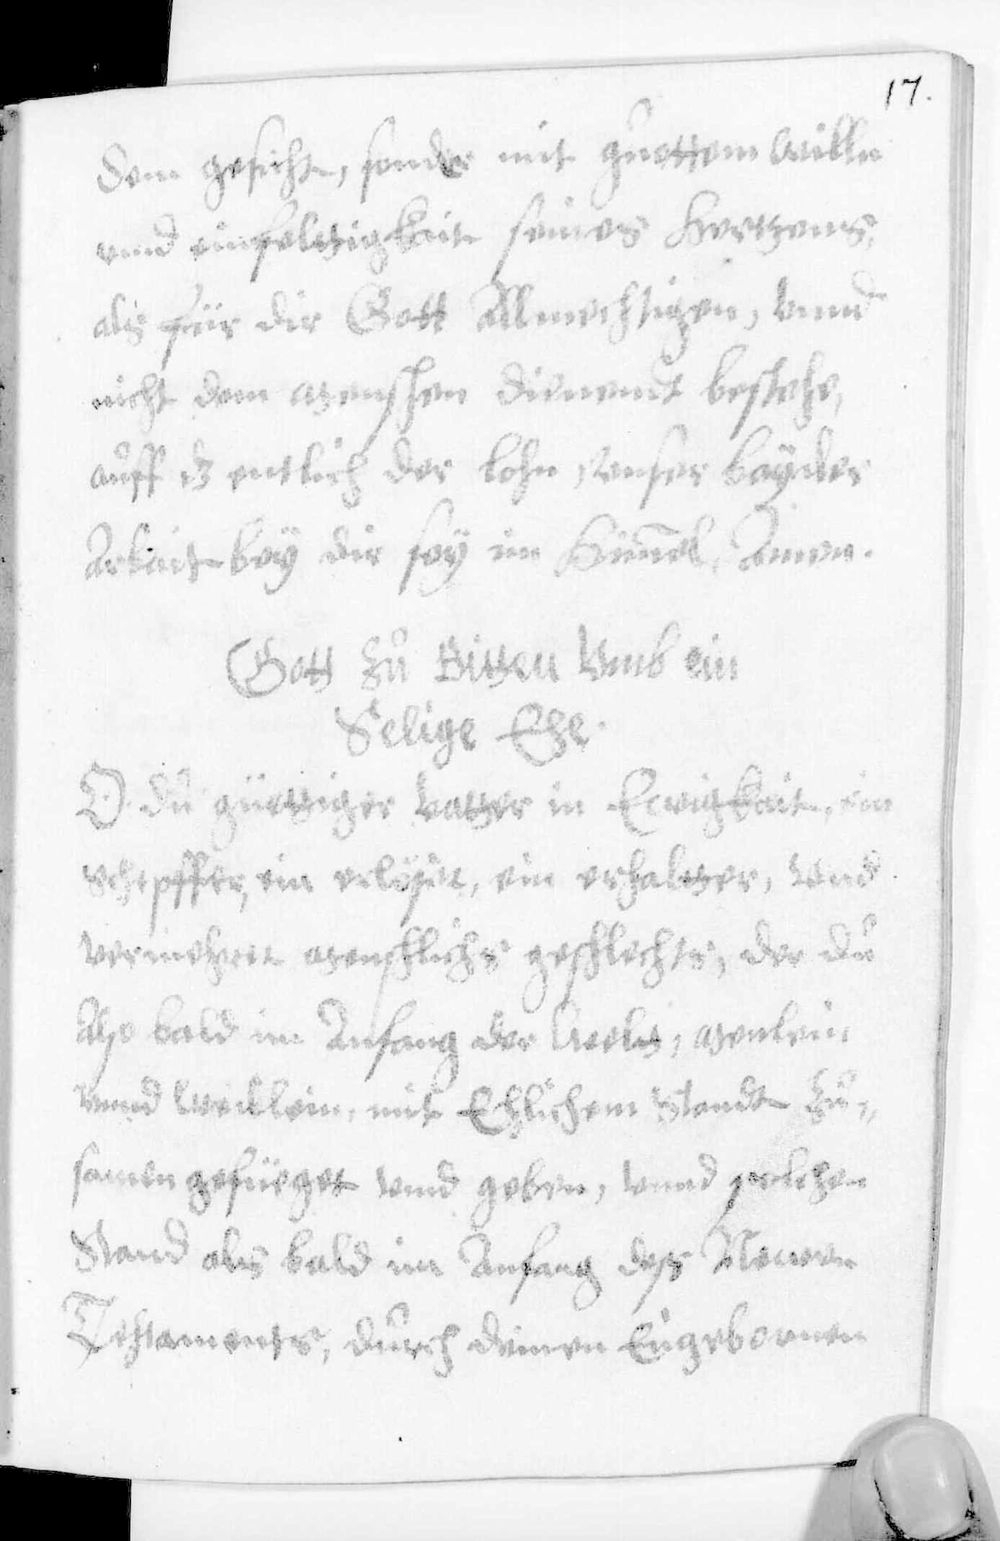 17.
dem gesicht, sonder mit guettem willn
unnd einfeltigkait seines Hertzens,
als für dir Gott Allmechtigen, Unnd
nicht dem menschen dienendt bestehe,
auff dz entlich der lohn, unser bayder
Arbait bey dir sey im Himel, Amen.
Gott zu Bitten Umb ein
Selige Ehe.
O du güettiger Vatter in Ewigkait, ein
Schepffer, ein erlöser, ein erhalter, Und
vermehrer menschlichs geschlechts, der du
Also bald im Anfang der Welt, menlein
Unnd Weiblein, mit Ehlichem Standt zu-
samen gefüeget und geben, Unnd solchen
Stand als bald im Anfang dess Newen
Testaments, durch deinen Eingebornen